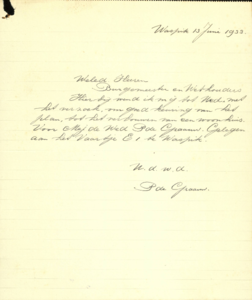 Waspik 13 Juni 1933.
Weled. Heeren
Burgemeester en Wethouders
Hierbij wend ik mij tot Ued. met
het verzoek, om goedkeuring van het
plan, tot het verbouwen van een woonhuis
Voor Mej. de Wed. P. de Graauw. Gelegen
aan het Vaartje E 1 te Waspik.
U. d. w. d.
P. de Graauw.